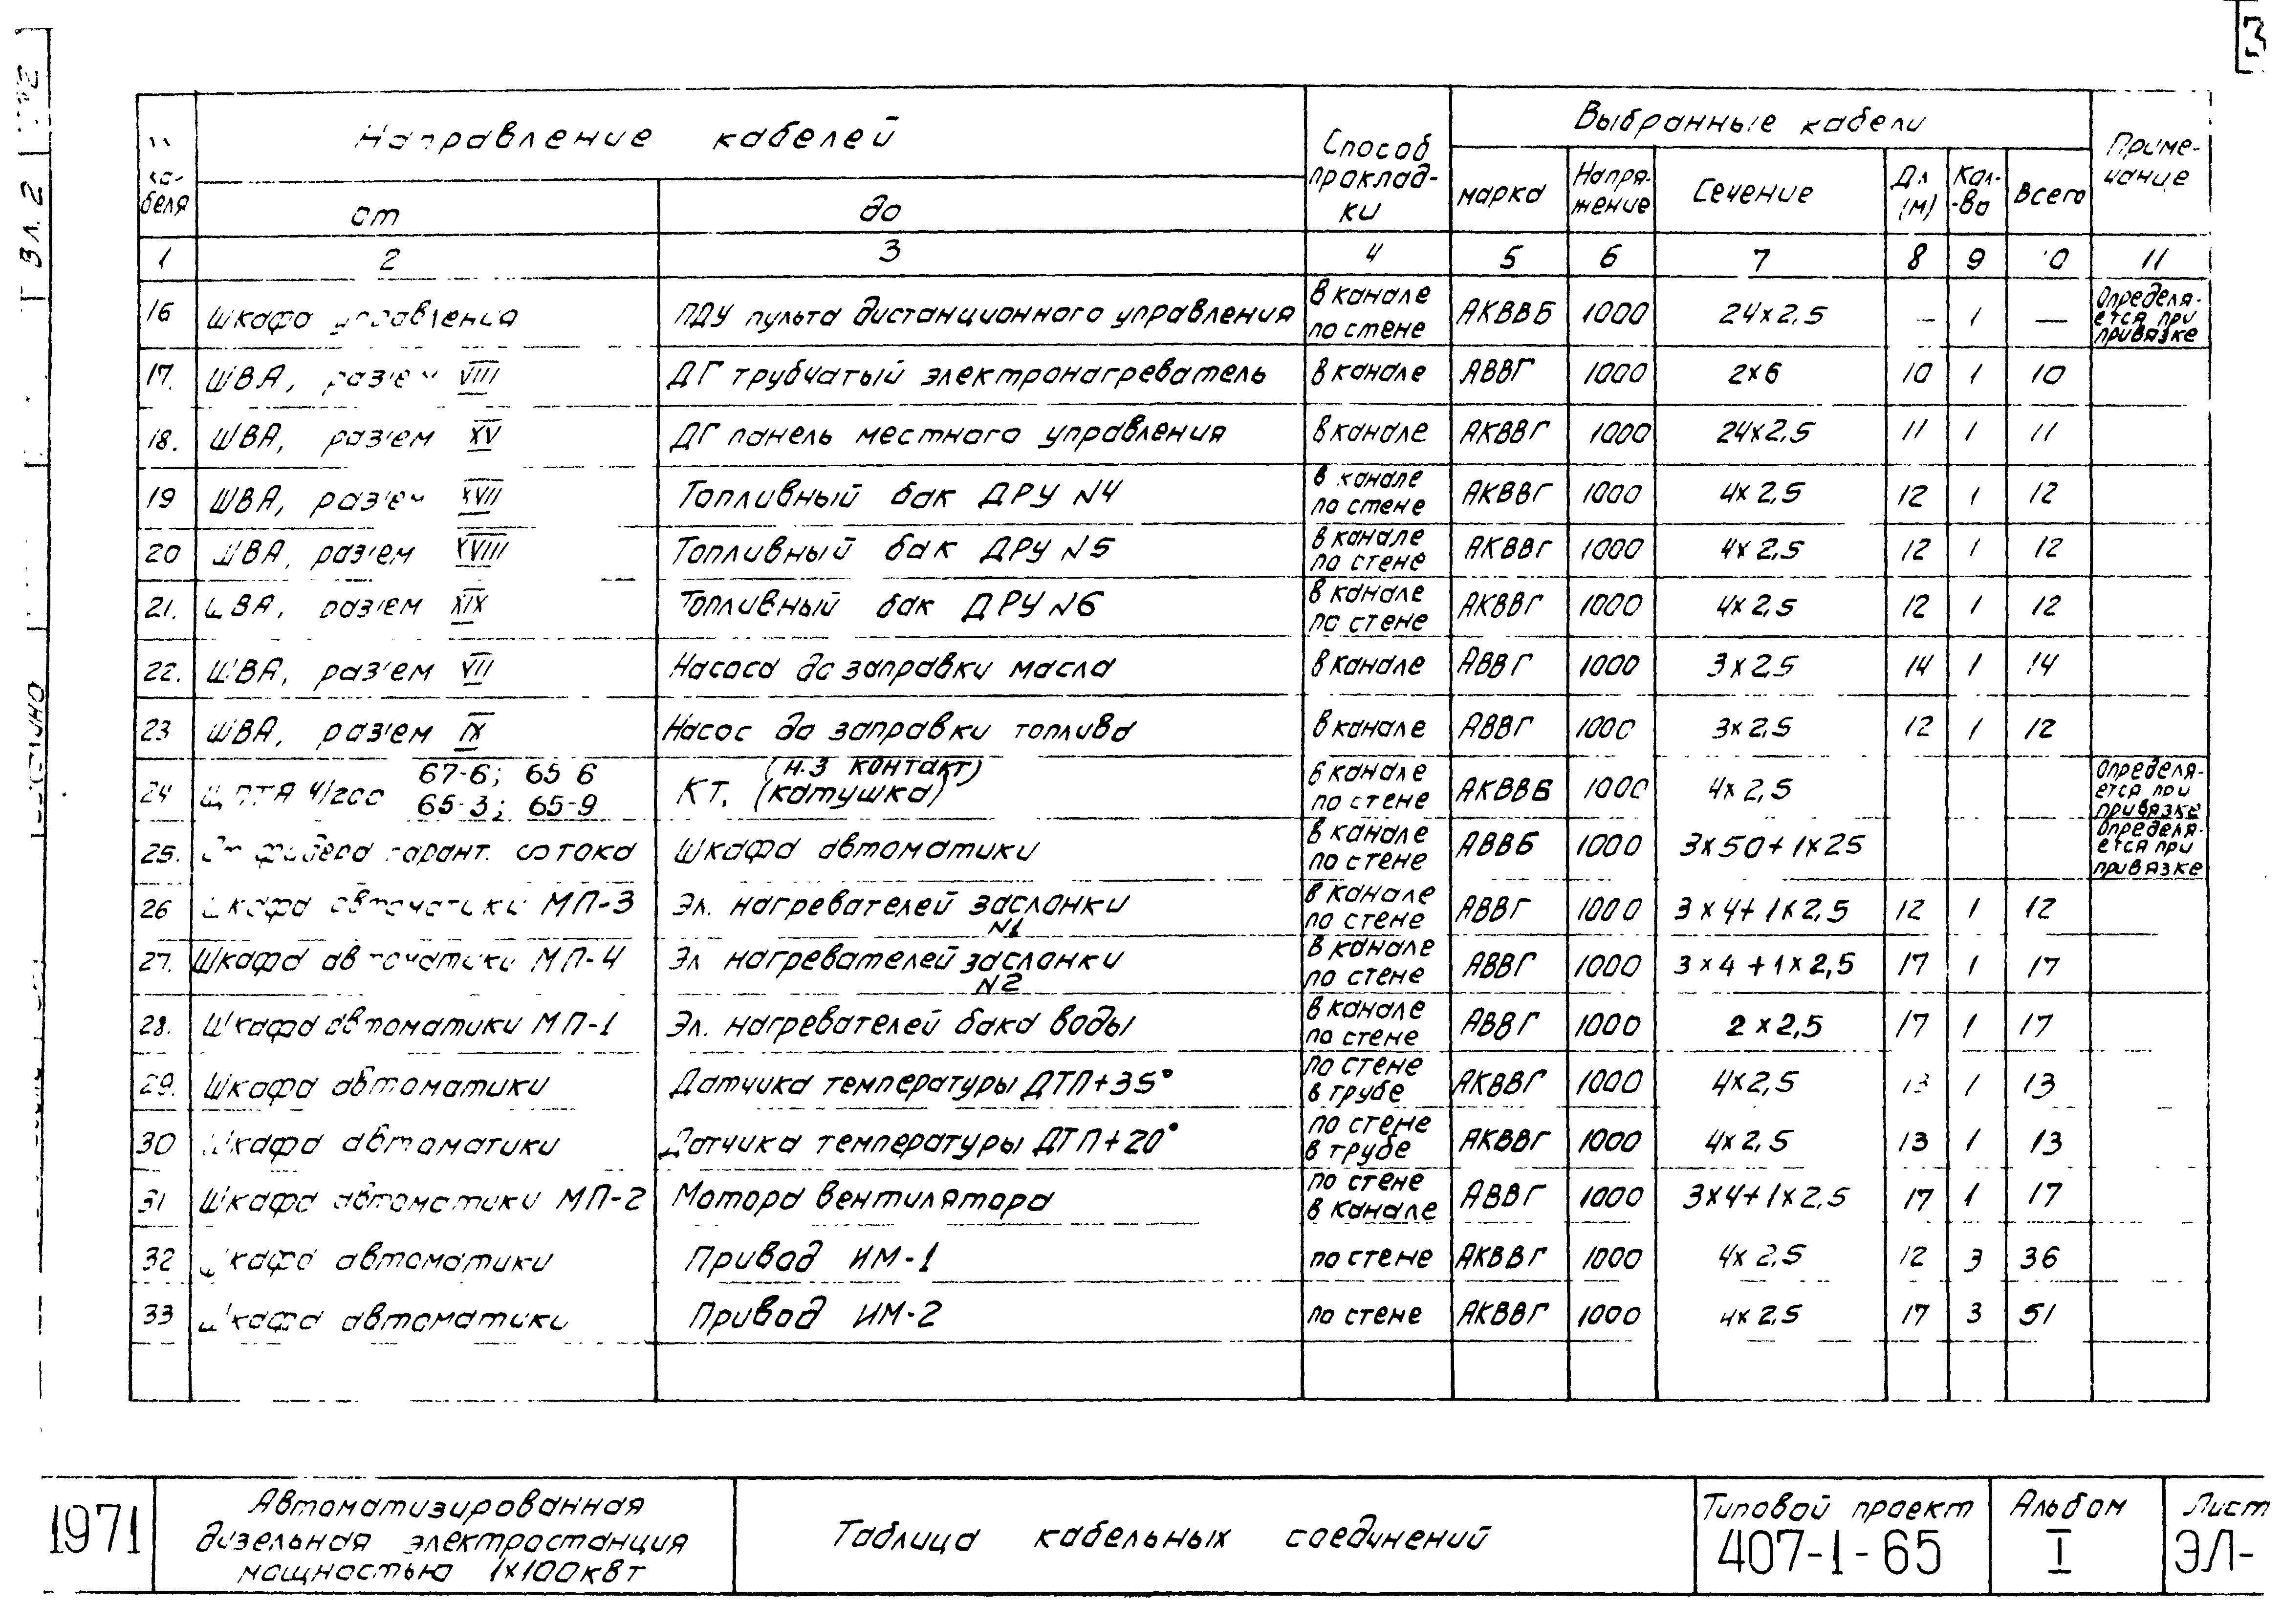 3
Вл. 2
Направление кабелей
Способ прокладки
Выбранные кабели
Приме-чание
беля
от
до
марка
Напря-жение
Сечение
Дл (м)
Кол-во
Всего
1 2 3 4 5 6 7 8 9 10 11
16 Шкафа управления ПДУ пульта дистанционного управления в канале по стене АКВВБ 1000 24х2,5 — 1 — Определя-ется при привязке
17. ШВА, раз'ем VIII ДГ трубчатый электронагреватель в канале АВВГ 1000 2х6 10 1 10
18. ШВА, раз'ем XV ДГ панель местного управления в канале АКВВГ 1000 24х2,5 11 1 11
19 ШВА, раз'ем XVII Топливный бак ДРУ N4 в канале по стене АКВВГ 1000 4х2,5 12 1 12
20 ШВА, раз'ем XVIII Топливный бак ДРУ N5 в канале по стене АКВВГ 1000 4х2,5 12 1 12
21. ШВА, раз'ем XIX Топливный бак ДРУ N6 в канале по стене АКВВГ 1000 4х2,5 12 1 12
22. ШВА, раз'ем VII Насоса до заправки масла в канале АВВГ 1000 3х2,5 14 1 14
23 ШВА, раз'ем IX Насос до заправки топлива в канале АВВГ 1000 3х2,5 12 1 12
24 ЩПТА 4/200 67-6; 65 6 65-3; 65-9 КТ. (н.з контакт) (катушка) в канале по стене АКВВБ 1000 4х2,5 Определя-ется при привязке
25. От фидера гарант. тока Шкафа автоматики в канале по стене АВВБ 1000 3х50+1х25 Определя-ется при привязке
26 Шкафа автоматики МП-3 Эл. нагревателей заслонки N1 в канале по стене АВВГ 1000 3х4+1х2,5 12 1 12
27. Шкафа автоматики МП-4 Эл нагревателей заслонки N2 в канале по стене АВВГ 1000 3х4+1х2,5 17 1 17
28. Шкафа автоматики МП-1 Эл. нагревателей бака воды в канале по стене АВВГ 1000 2х2,5 17 1 17
29. Шкафа автоматики Датчика температуры ДТП+35° по стене в трубе АКВВГ 1000 4х2,5 13 1 13
30 Шкафа автоматики Датчика температуры ДТП+20° по стене в трубе АКВВГ 1000 4х2,5 13 1 13
31 Шкафа автоматики МП-2 Мотора вентилятора по стене в канале АВВГ 1000 3х4+1х2,5 17 1 17
32 Шкафа автоматики Привод ИМ-1 по стене АКВВГ 1000 4х2,5 12 3 36
33 Шкафа автоматики Привод ИМ-2 по стене АКВВГ 1000 4х2,5 17 3 51
1971
Автоматизированная
дизельная электростанция
мощностью 1х100квт
Таблица кабельных соединений
Типовой проект
407-1-65
Альбом
I
Лист
ЭЛ-